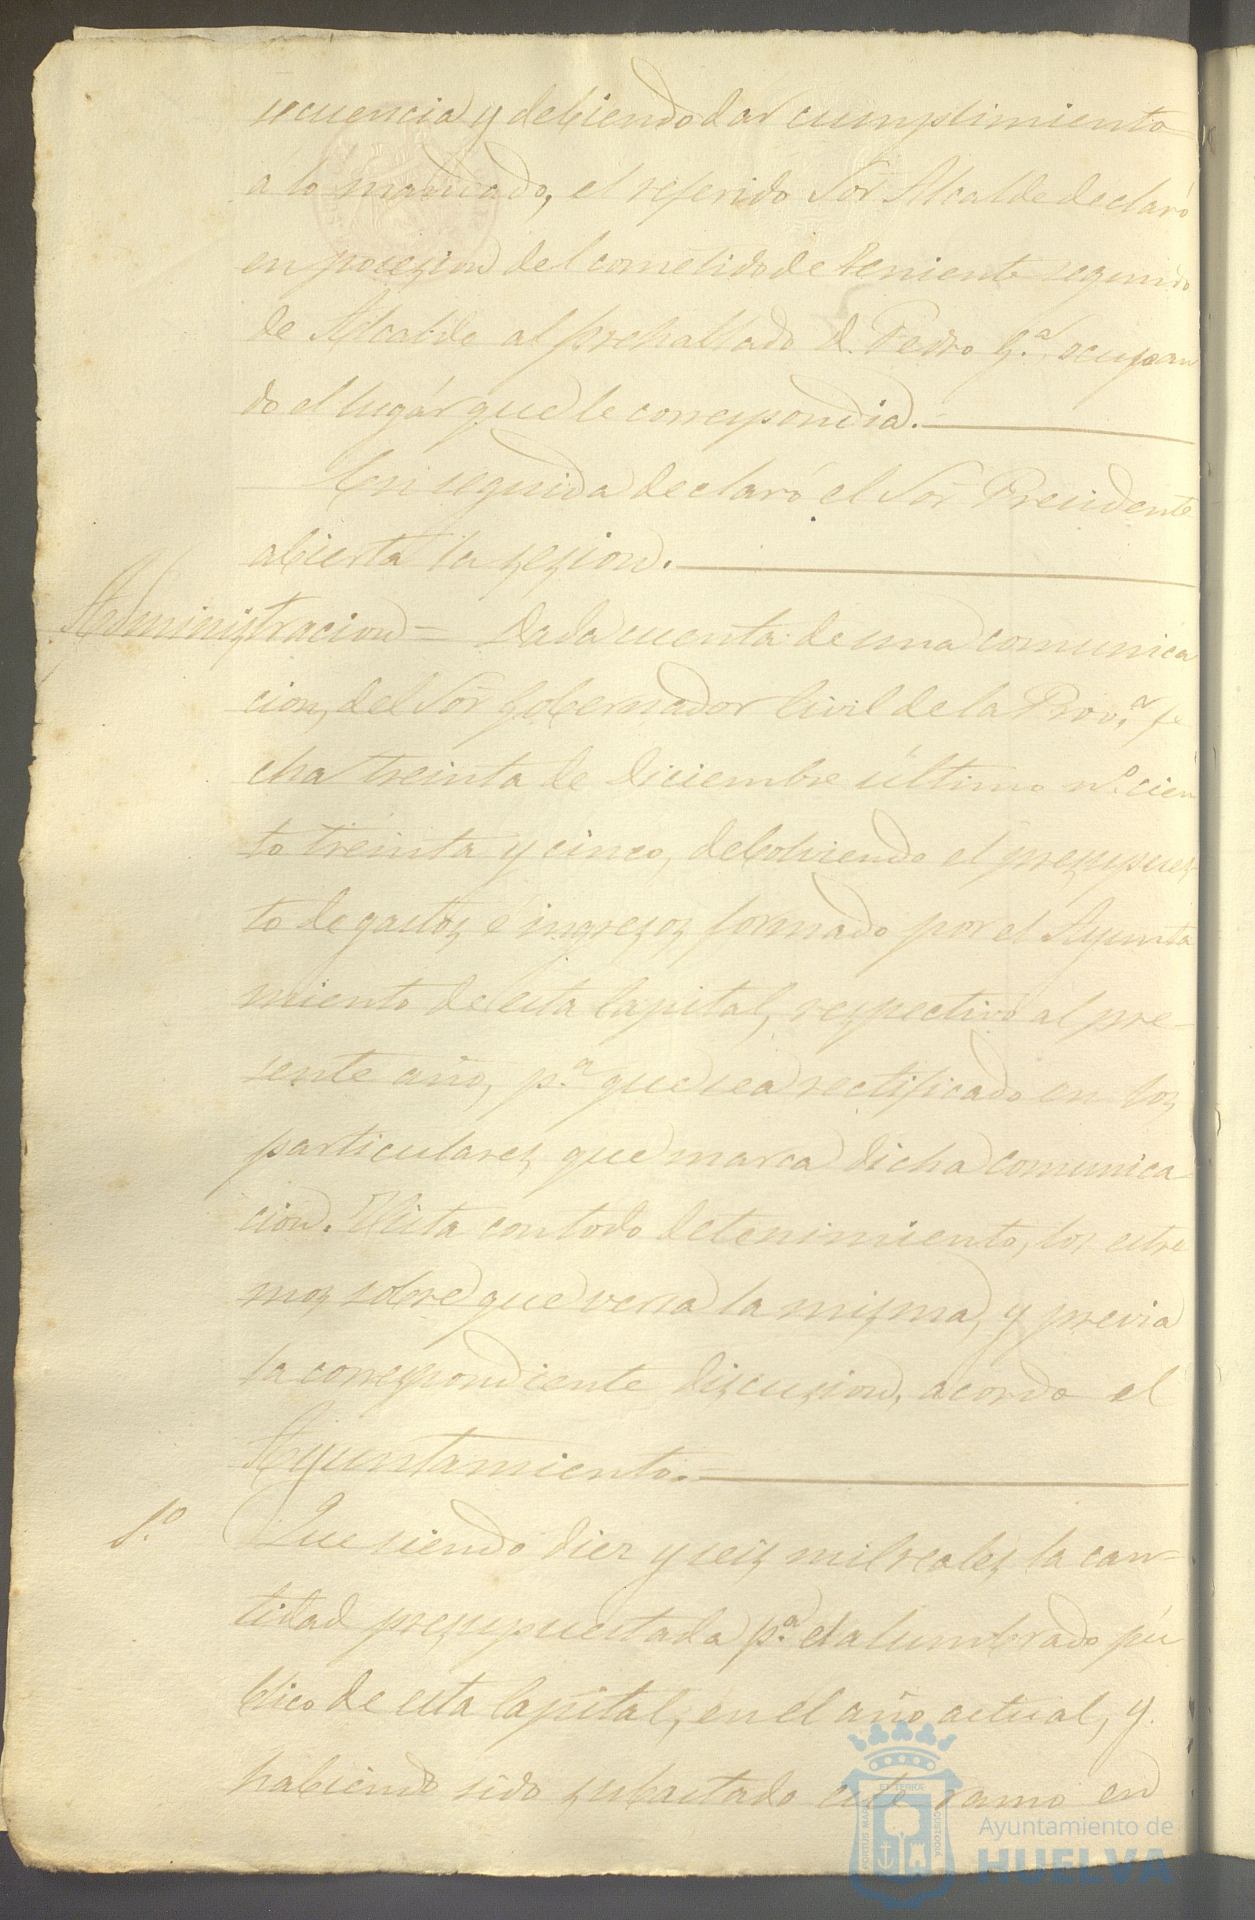 secuencia y debiendo dar cumplimiento
á lo mandado, el referido Sor Alcalde declaró
en posesion del cometido de teniente segundo
de Alcalde al prehablado d. Pedro G.ª, ocupan
do el lugár que le correspondia.
Enseguida declaró el Sor Presidente
abierta la sesion.
Administracion = Dada cuenta de una comunica
cion, del Sor Gobernador Civil de la Prov.ª fe
cha treinta de Diciembre último nº. cien
to treinta y cinco, debolviendo el presupues-
to de gastos é ingresos formado por el Ayunta
miento de esta Capital, respectivo al pre-
sente año, p.ª que sea rectificado en los
particulares que marca dicha comunica
cion. Vista con todo detenimiento, los estre
mos sobre que versa la misma, y previa
la correspondiente discusion, acordo el
Ayuntamiento.
1.º Que siendo diez y seis mil reales la can-
tidad presupuestada p.ª el alumbrado pú
blico de esta Capital, en el año actual, y
habiendo sido subastado este ramo en
PORTUS MARIS ET TERRÆ CUSTODIA
Ayuntamiento de
HUELVA